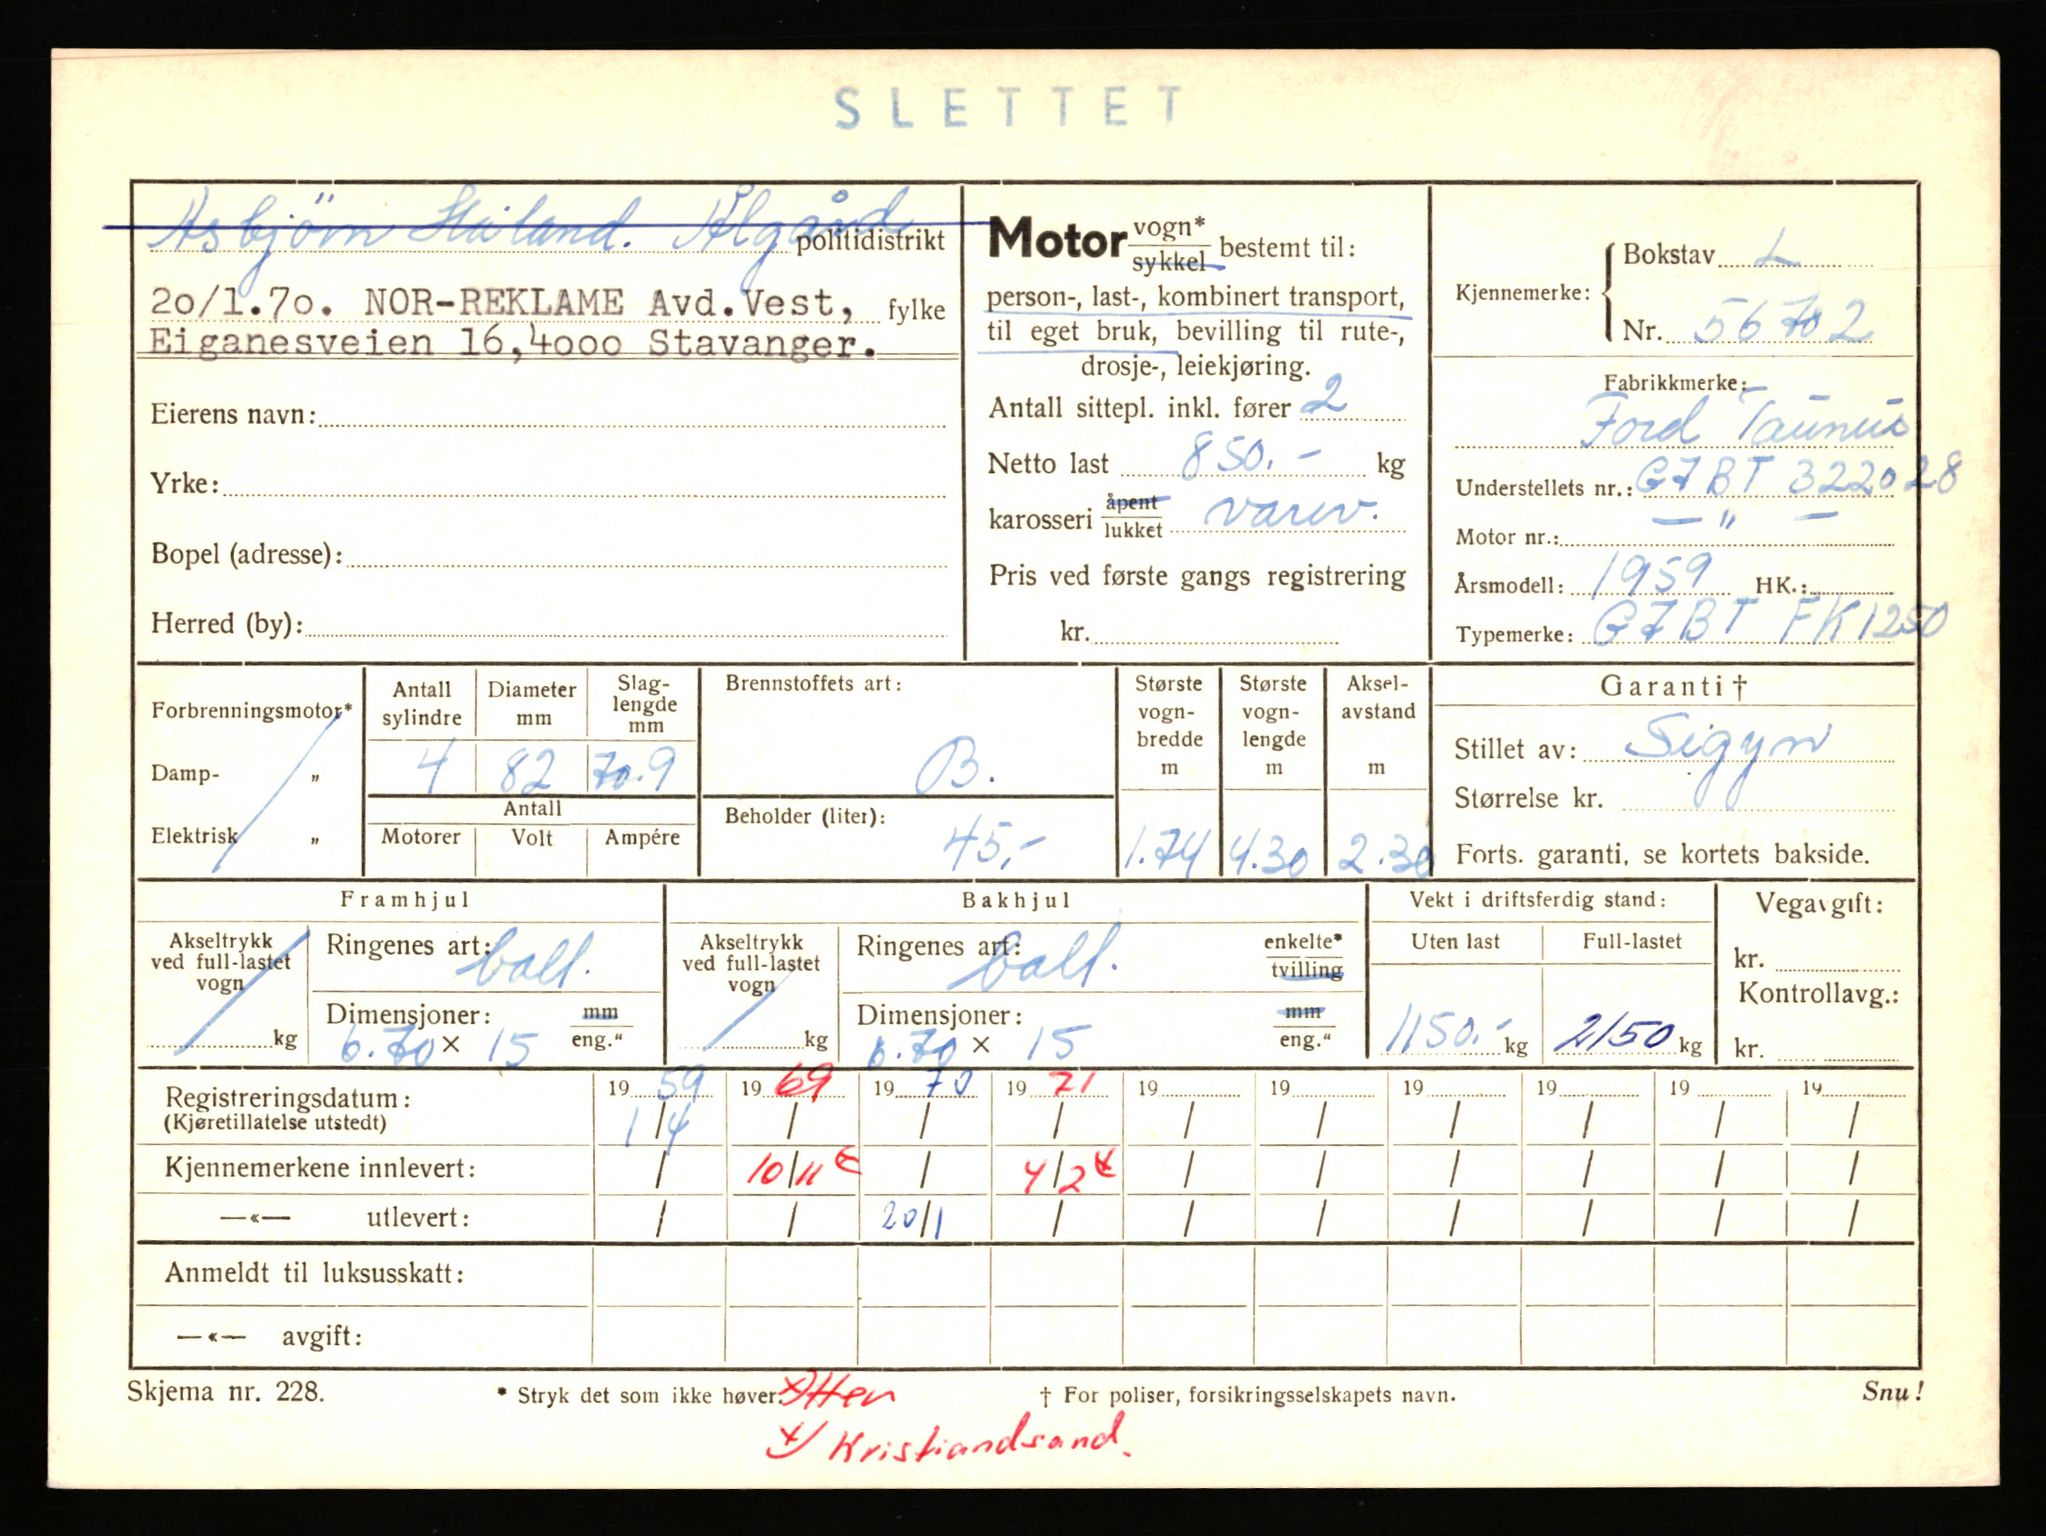 SLETTET
Asbjörn Håland. Ålgård politidistrikt
20/1.70. NOR-REKLAME Avd.Vest, fylke
Eiganesveien 16,4000 Stavanger.
Eierens navn:
Yrke:
Bopel (adresse):
Herred (by):
Motor vogn* sykkel bestemt til:
person-, last-, kombinert transport,
til eget bruk, bevilling til rute-,
drosje-, leiekjøring.
Antall sittepl. inkl. fører 2
Netto last 850.- kg
karosseri åpent lukket varev.
Pris ved første gangs registrering
kr.
Kjennemerke: Bokstav L
Nr. 56702
Fabrikkmerke:
Ford Taunus
Understellets nr.: G7BT 322028
Motor nr.: — " —
Årsmodell: 1959 HK.:
Typemerke: G7BT FK1250
Forbrenningsmotor*
Damp- „
Elektrisk „
Antall sylindre Diameter mm Slag-lengde mm
4 82 70.9
Antall
Motorer Volt Ampére
Brennstoffets art:
B.
Beholder (liter):
45,-
Største vogn-bredde m Største vogn-lengde m Aksel-avstand m
1.74 4.30 2.30
Garanti †
Stillet av: Sigyn
Størrelse kr.
Forts. garanti, se kortets bakside.
Framhjul
Akseltrykk ved full-lastet vogn
kg
Ringenes art: ball.
Dimensjoner: mm
6.70 × 15 eng."
Bakhjul
Akseltrykk ved full-lastet vogn
kg
Ringenes art: ball. enkelte* tvilling
Dimensjoner: mm
6.70 × 15 eng."
Vekt i driftsferdig stand:
Uten last Full-lastet
1150.- kg 2150 kg
Vegavgift:
kr.
Kontrollavg.:
kr.
Registreringsdatum: 19 59 19 69 19 70 19 71 19 19 19 19 19 19
(Kjøretillatelse utstedt) 1/4 / / / / / / / / /
Kjennemerkene innlevert: / 10/11 / 4/2 / / / / / /
—«— utlevert: / / 20/1 / / / / / / /
Anmeldt til luksusskatt:
—«— avgift:
Skjema nr. 228. * Stryk det som ikke høver. † For poliser, forsikringsselskapets navn. Snu!
x/ Kristiandsand.